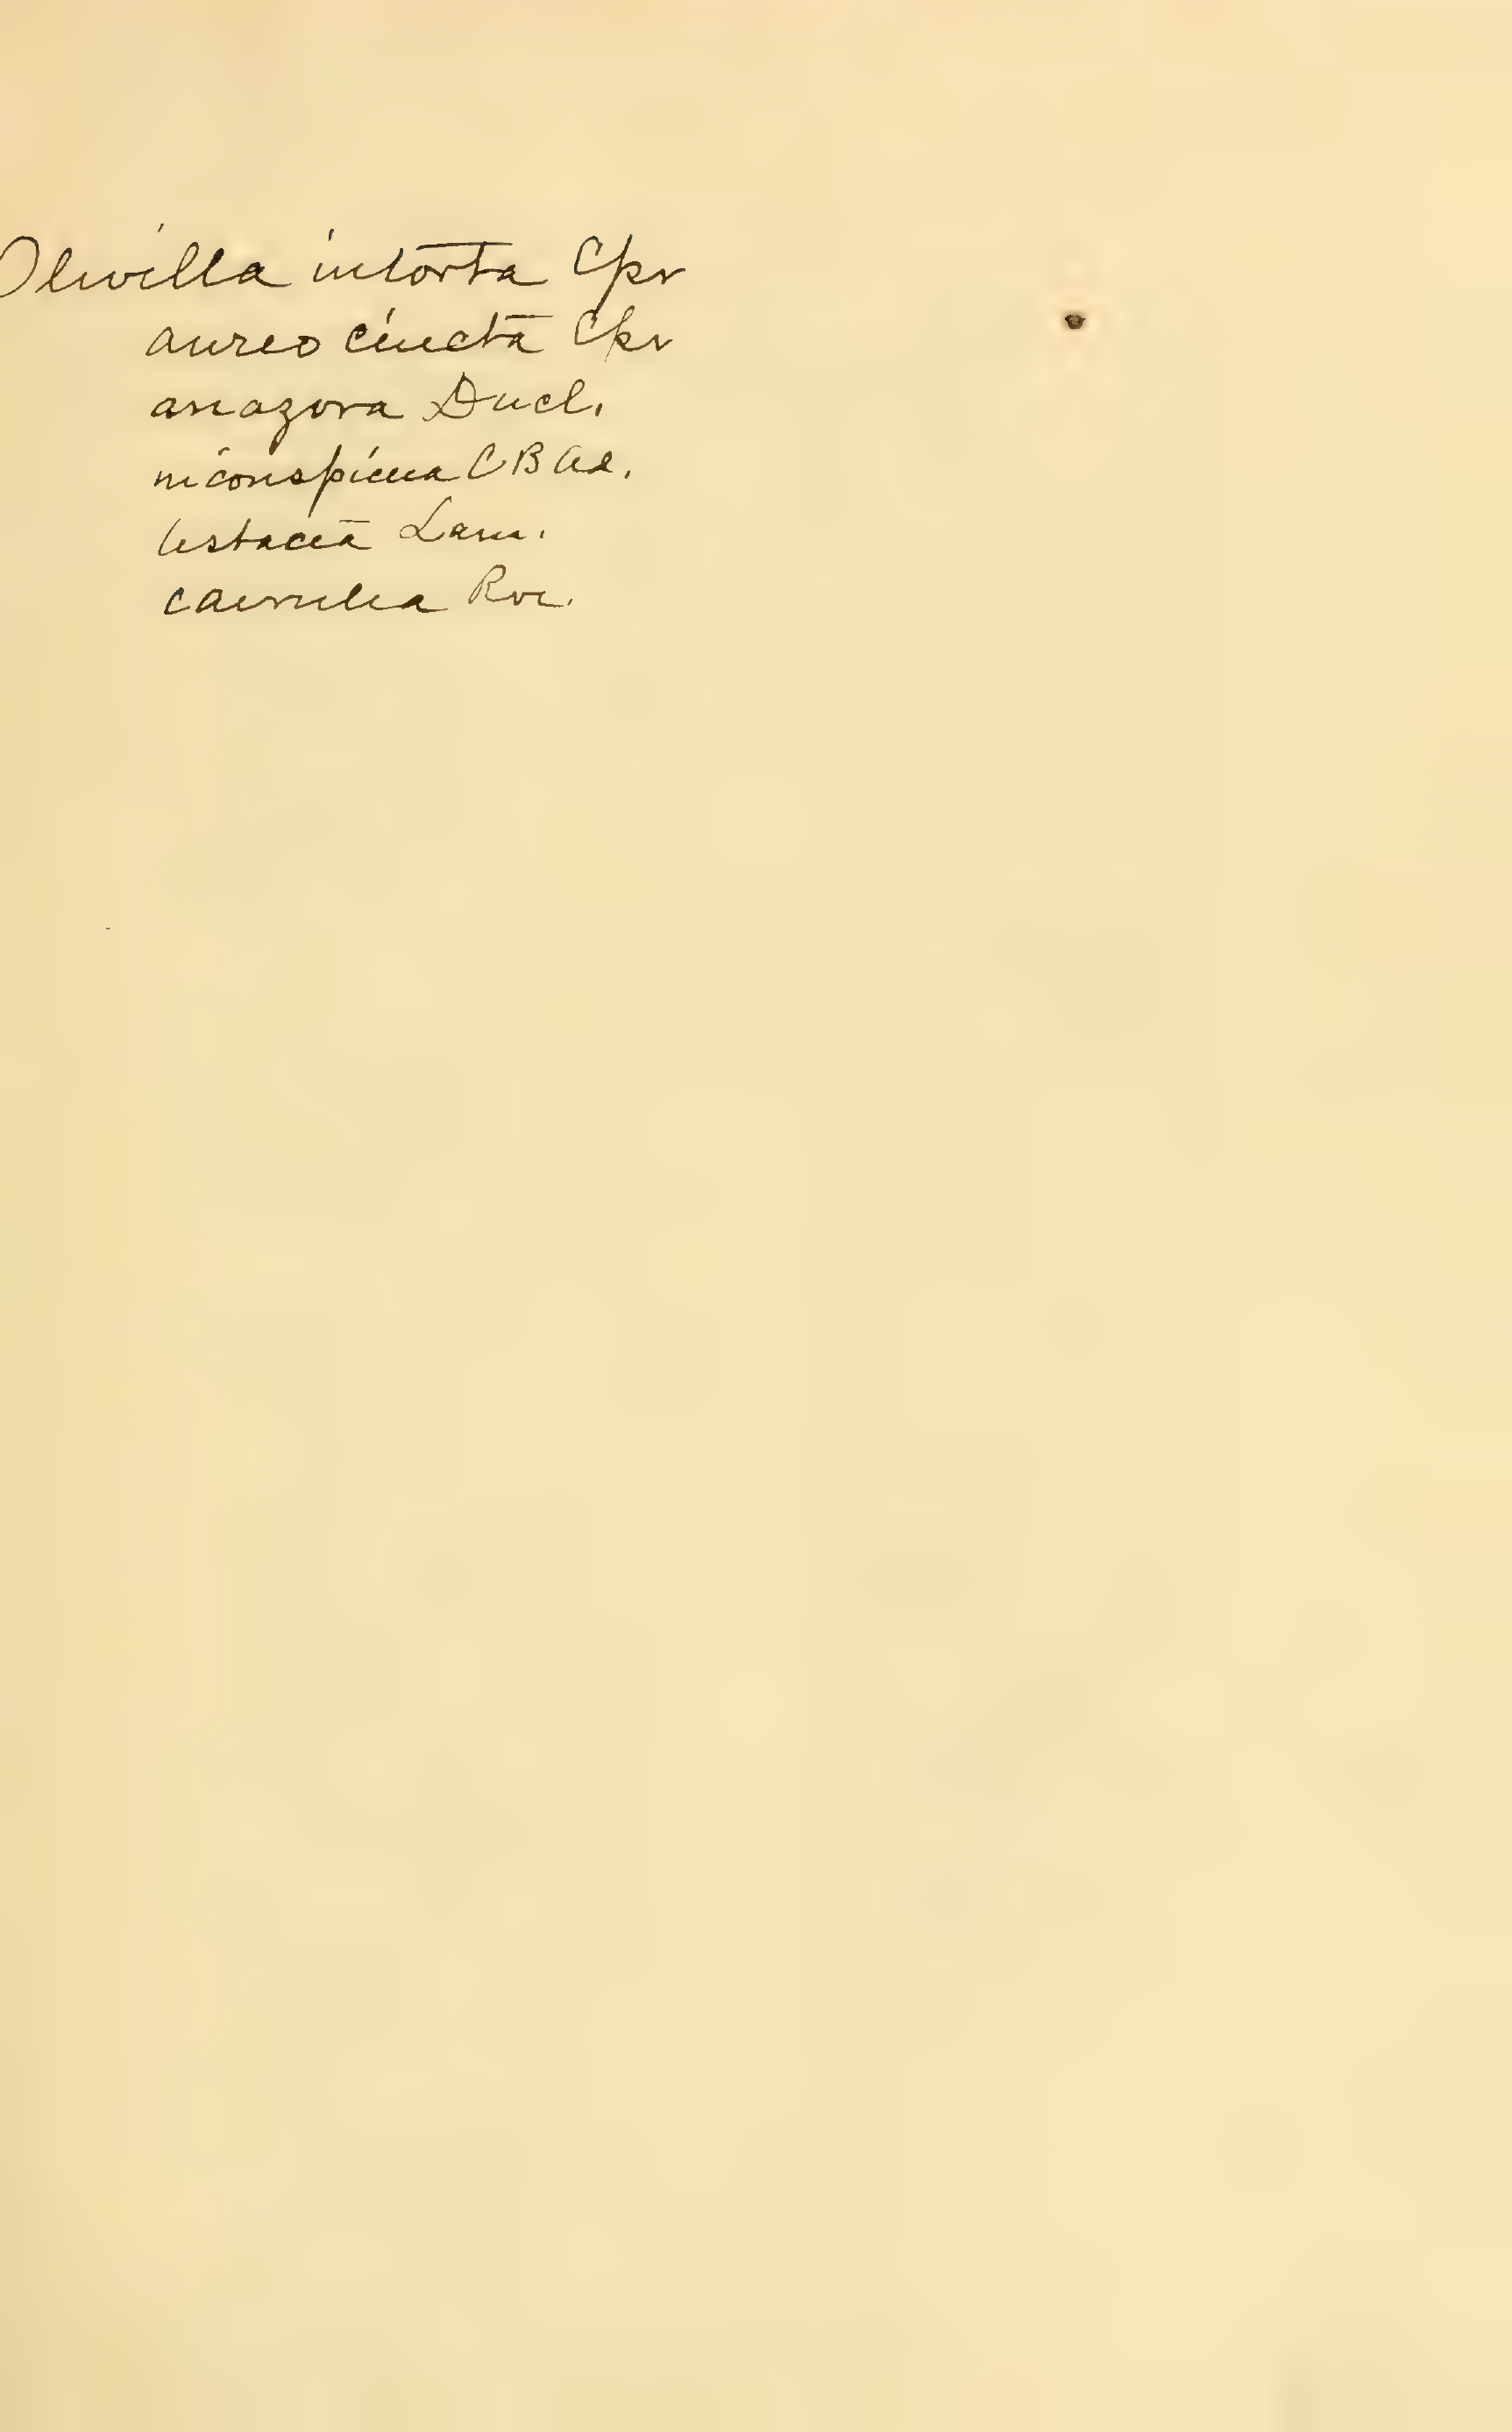 Olivella intorta Cpr
aureo cincta Cpr
anazora Ducl.
inconspicua C B Ad.
testacea Lam.
caerulea